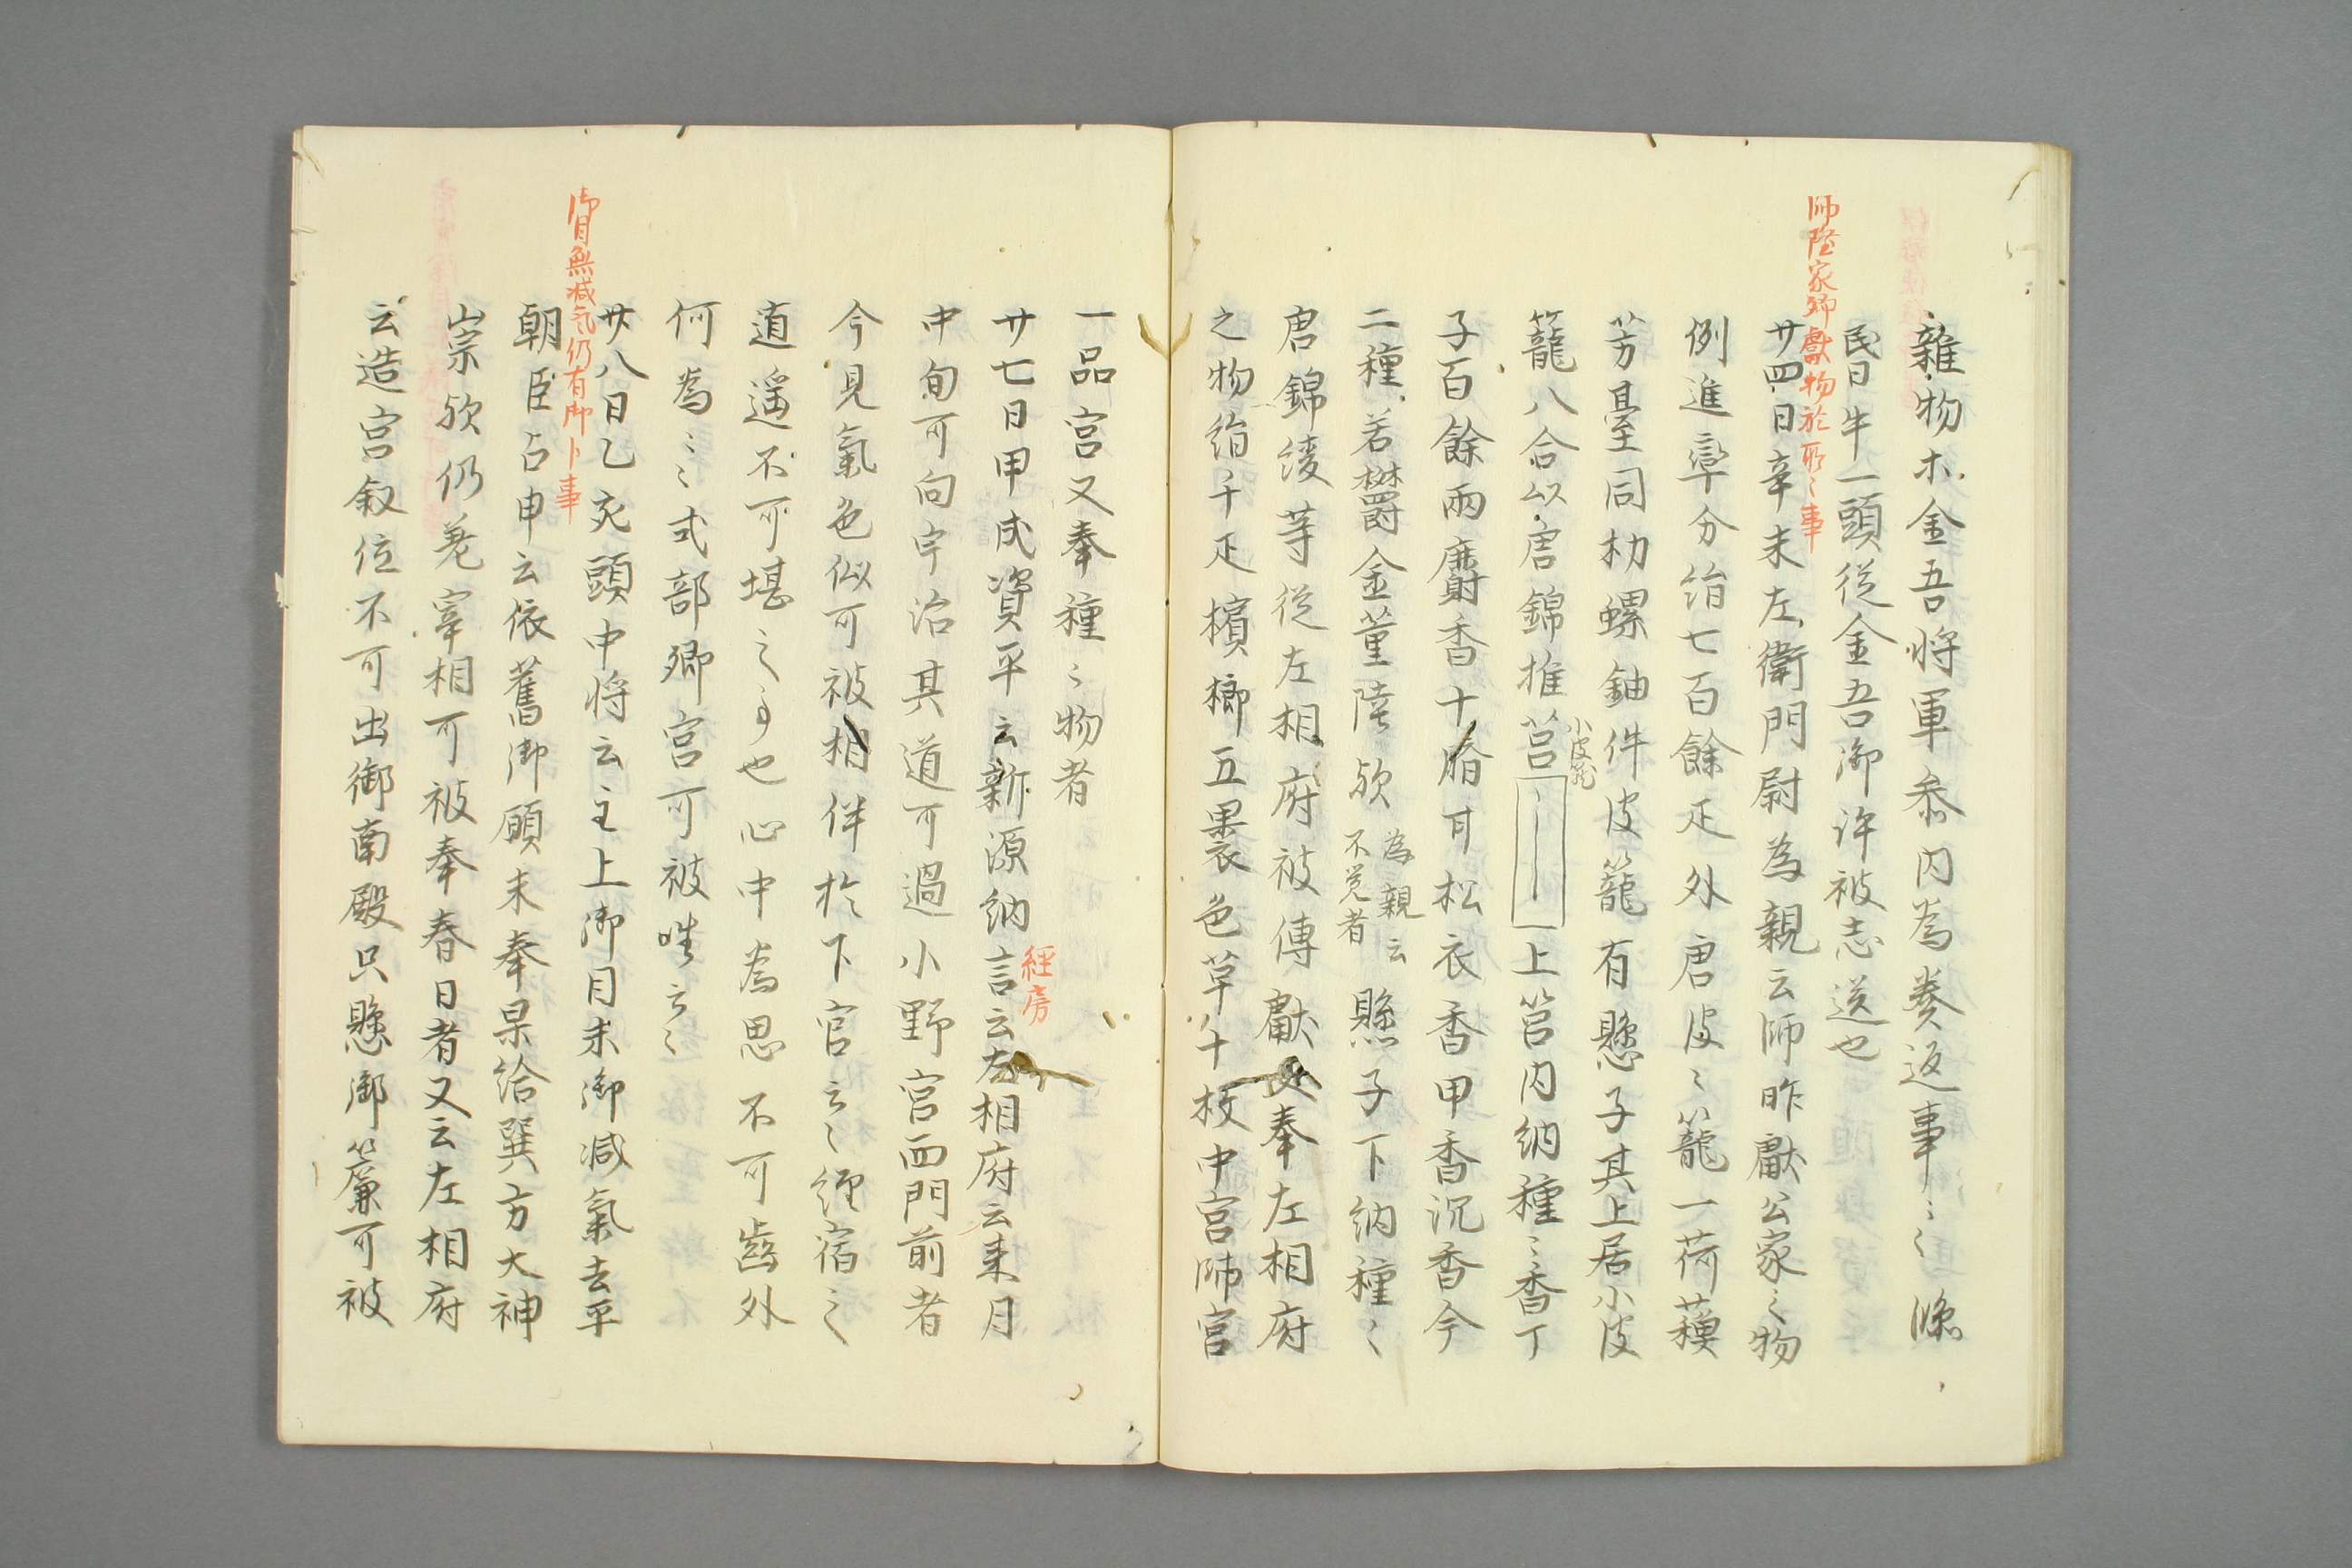 雜物木金吾将軍叅内為奏返事〻〻　滌
民日牛一頭従金吾御許被志送也
師隆家卿獻物於所〻事
廿四日辛未左衛門尉為親云師昨獻公家之物
例進率分絹七百餘疋外唐皮〻籠一荷蘓
芳臺同朸螺鈿件皮籠有懸子其上居小皮
籠八合以唐錦推莒
小皮籠
上筥内納種〻香丁
子百餘兩麝香十臍甘松衣香甲香沉香今
二種若欝金薫陸欤
為親云
不覚者
懸子下納種〻
唐錦綾等従左相府被傳獻又奉左相府
之物絹千疋檳榔五褁色草十枚中宮師宮
一品宮又奉種〻物者
廿七日甲戌資平云新源納言云左相府云来月
經房
中旬可向宇治其道可過小野宮西門前者
今見氣色似可被相伴於下官云〻経宿之
逍遥不可堪之事也心中為思不可齒外
何為〻〻式部卿宮可被唯云〻
御目無减气仍有御卜事
廿八日乙亥頭中将云主上御目未御减氣去平
朝臣占申云依舊御願未奉果給巽方大神
崇欤仍差宰相可被奉春日者又云左相府
云造宮叙位不可出御南殿只懸御簾可被